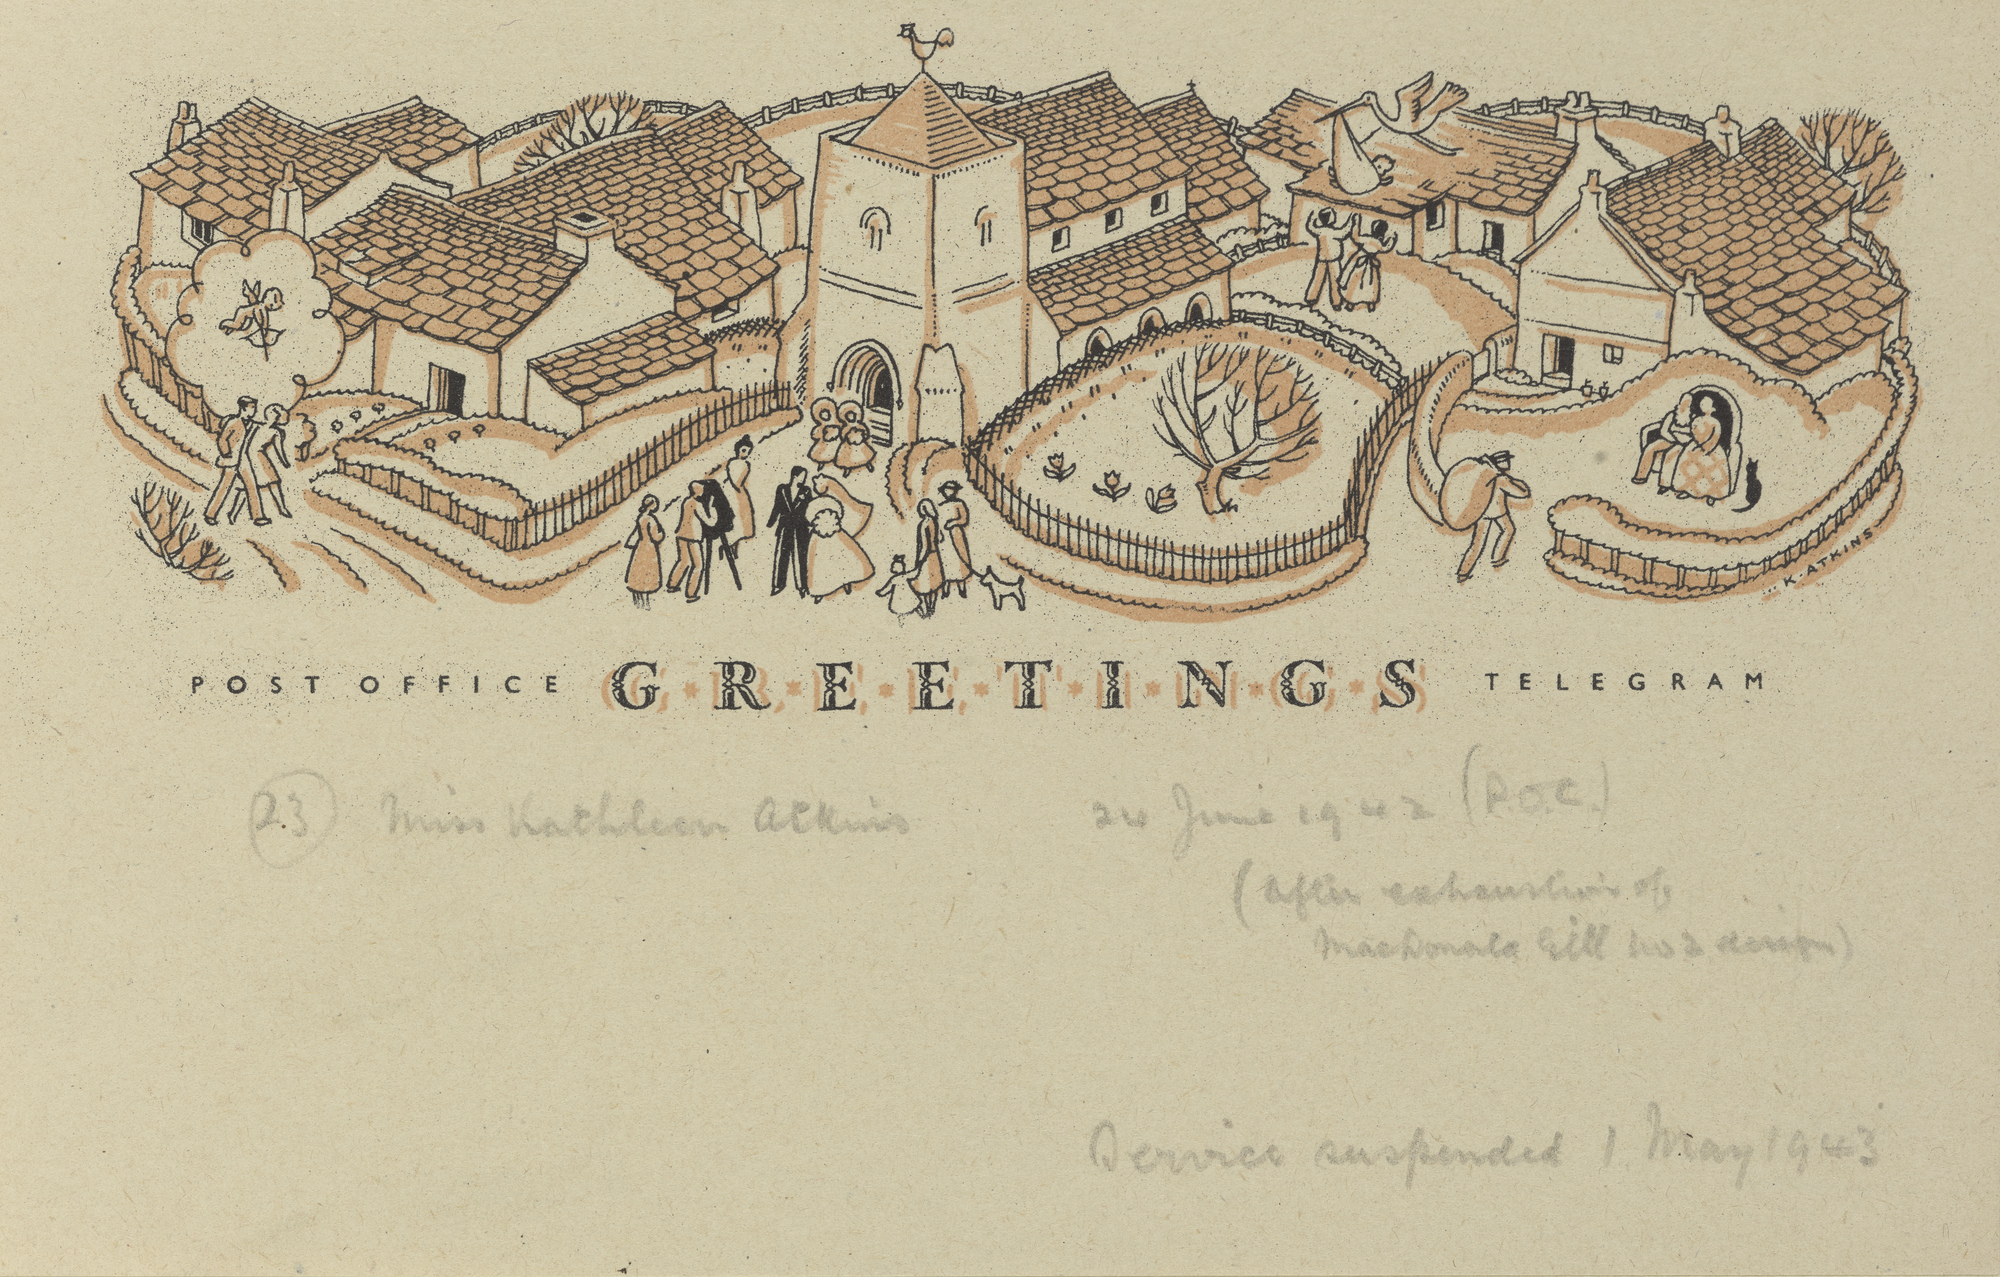 K·ATKINS
POST OFFICE G·R·E·E·T·I·N·G·S TELEGRAM
23 Miss Kathleen Atkins 24 June 1942 (P.O.C.)
(After exhaustion of
MacDonald Gill no 2 design)
Service suspended 1 May 1943